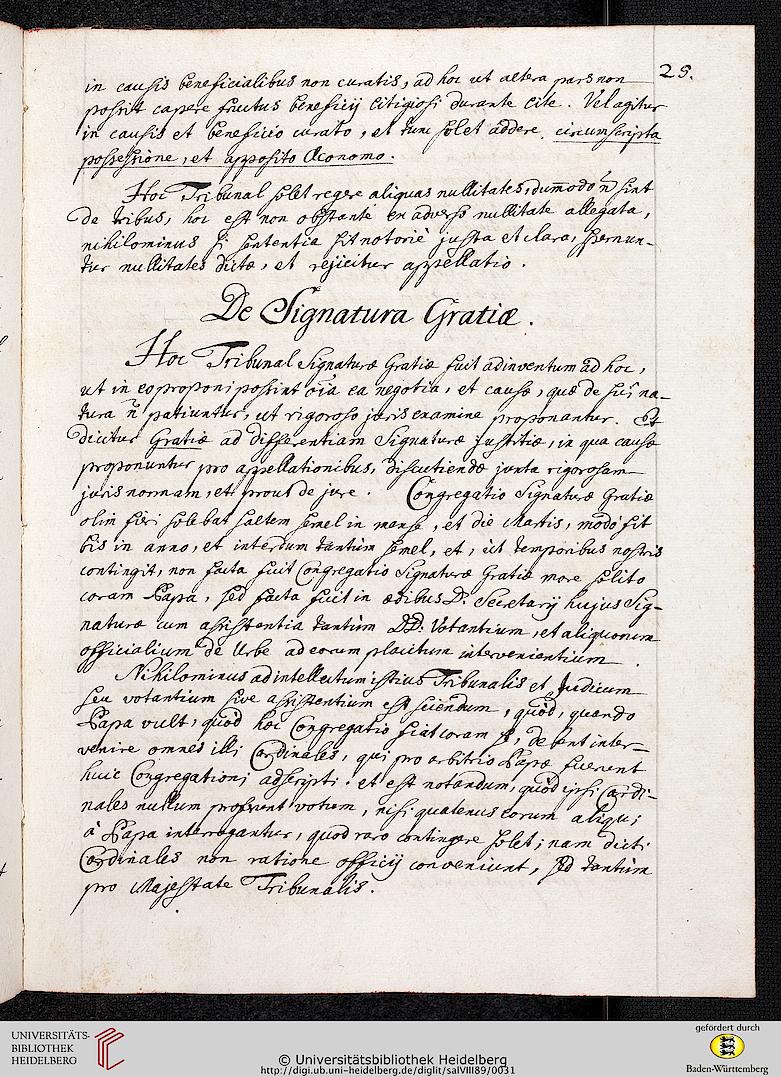 25.
in causis beneficialibus non curatis, ad hoc ut altera pars non
possit capere fructus beneficij litigiosi durante lite. Vel agitur
in causis et beneficio curato, et tunc solet addere, circumscripta
possessione, et apposito Œconomo.
Hoc Tribunal solet regere aliquas nullitates, dum̄odo n̄ sint
de tribus, hoc est non obstante ex adverso nullitate allegata,
nihilominus si sententia sit notoriè justa et clara, spernun-
tur nullitates dictæ, et rejicitur appellatio.
De Signatura Gratiæ.
Hoc Tribunal Signaturæ Gratiæ fuit adinventum ad hoc,
ut in eo proponi possint oīa ea negotia, et causæ, quæ de sui na-
tura n̄ patiuntur, ut rigoroso juris examine proponantur. Et
dicitur Gratiæ ad differentiam Signaturæ Justitiæ, in qua causæ
proponuntur pro appellationibus, discutiendæ juxta rigorosam
juris normam, et prout de jure. Congregatio Signaturæ Gratiæ
olim fieri solebat saltem semel in mense, et die Martis, modò fit
bis in anno, et interdum tantùm semel, et, ut temporibus nostris
contingit, non facta fuit Congregatio Signaturæ Gratiæ more solito
coram Papa, sed facta fuit in ædibus D. Secretarij hujus Sig-
naturæ cum assistentia tantùm DD. Votantium, et aliquorum
officialium de Urbe ad eorum placitum intervenientium.
Nihilominus ad intellectum istius Tribunalis et Judicum
seu votantium sive assistentium est sciendum, quòd, quando
Papa vult, quòd hæc Congregatio fiat coram se, debent inter-
venire omnes illi Cardinales, qui pro arbitrio Papæ fuerunt
huic Congregationi adscripti. et est notandum, quòd ipsi Cardi-
nales nullum proferunt votum, nisi quatenus eorum aliqui
à Papa interrogantur, quod raro contingere solet; nam dicti
Cardinales non ratione officij conveniunt, sed tantùm
pro Majestate Tribunalis.
UNIVERSITÄTS-
BIBLIOTHEK
HEIDELBERG
© Universitätsbibliothek Heidelberg
http://digi.ub.uni-heidelberg.de/diglit/salVIII89/0031
gefördert durch
Baden-Württemberg